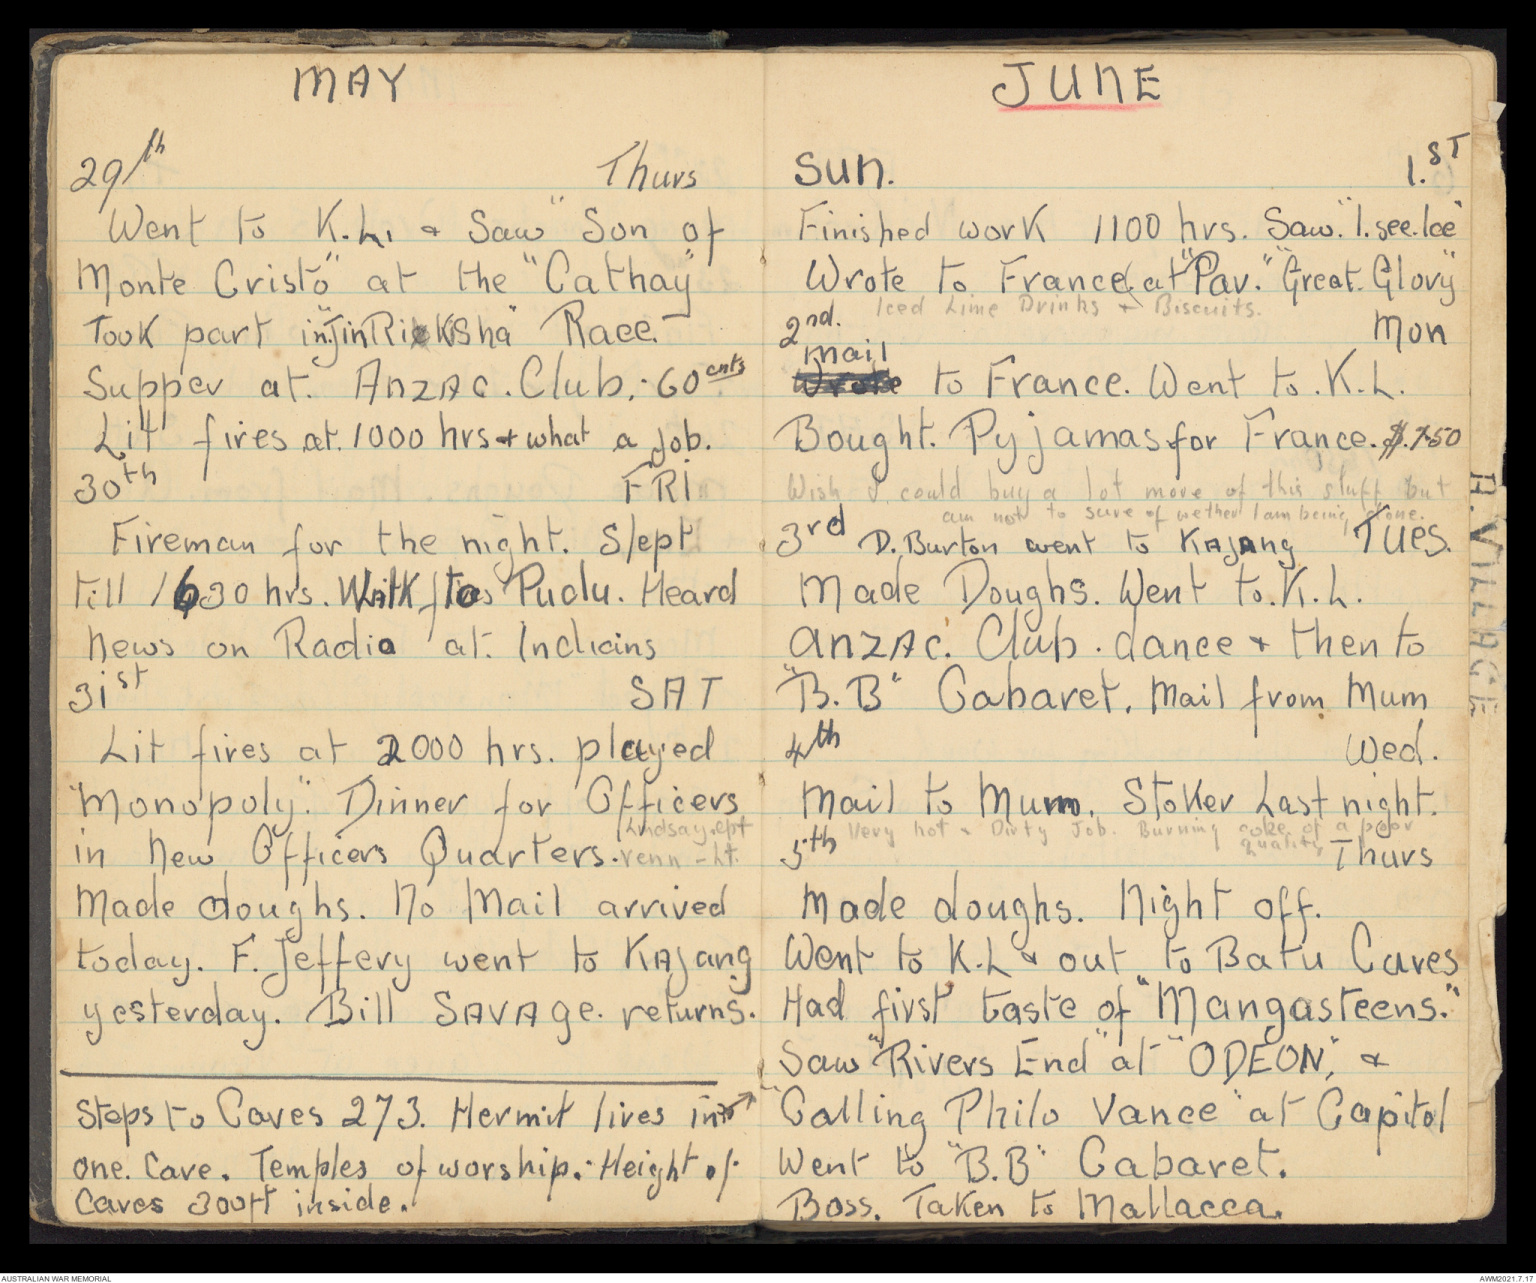 MAY
29th Thurs
Went to K.L. & Saw "Son of
Monte Cristo" at the "Cathay"
Took part in "JinRickSha" Race.
Supper at. Anzac. Club. 60 cnts
Lit fires at. 1000 hrs & what a job.
30th FRI.
Fireman for the night. Slept
till 1630 hrs. Walk to Pudu. Heard
News on Radio at. Indians
31st SAT
Lit fires at 2000 hrs. played
"Monopoly". Dinner for Officers
Lindsay
in New Officers Quarters. venn - Lt.
Made doughs. No Mail arrived
today. F. Jeffery went to Kajang
yesterday. Bill SAVAge. returns.
Steps to Caves 273. Hermit lives in
one. Cave. Temples of worship. Height of
Caves 300ft inside.
JUNE
Sun. 1.ST
Finished work 1100 hrs. Saw. "I. see. Ice"
Wrote to France at "Pav." "Great. Glory"
Iced Lime Drinks & Biscuits.
2nd. Mon
Mail
Wrote to France. Went to. K.L.
Bought. Pyjamas for France. $.7.50
Wish I could buy a lot more of this stuff but
am not to sure of wether I am being done.
3rd D. Burton went to Kajang Tues.
Made Doughs. Went to. K.L.
Anzac. Club. dance & then to
"B.B" Cabaret. Mail from Mum
4th Wed.
Mail to Mum. Stoker Last night.
Very hot & Dirty Job. Burning coke of a poor
quality
5th Thurs
Made doughs. Night off.
Went to K.L & out to Batu Caves
Had first taste of "Mangasteens."
Saw "Rivers End" at "ODEON", &
"Calling Philo Vance" at Capitol
Went to "B.B" Cabaret.
Boss. Taken to Mallacca.
A. VILLAGE
AUSTRALIAN WAR MEMORIAL
AWM2021.7.17